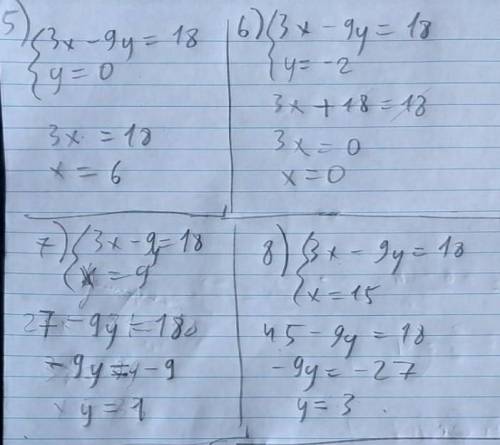 5) { 3x - 9y = 18
y = 0
3x = 18
x = 6
6) { 3x - 9y = 18
y = -2
3x + 18 = 18
3x = 0
x = 0
7) { 3x - 9y = 18
= 9
27 - 9y = 18
-9y = -9
y = 1
8) { 3x - 9y = 18
x = 15
45 - 9y = 18
-9y = -27
y = 3